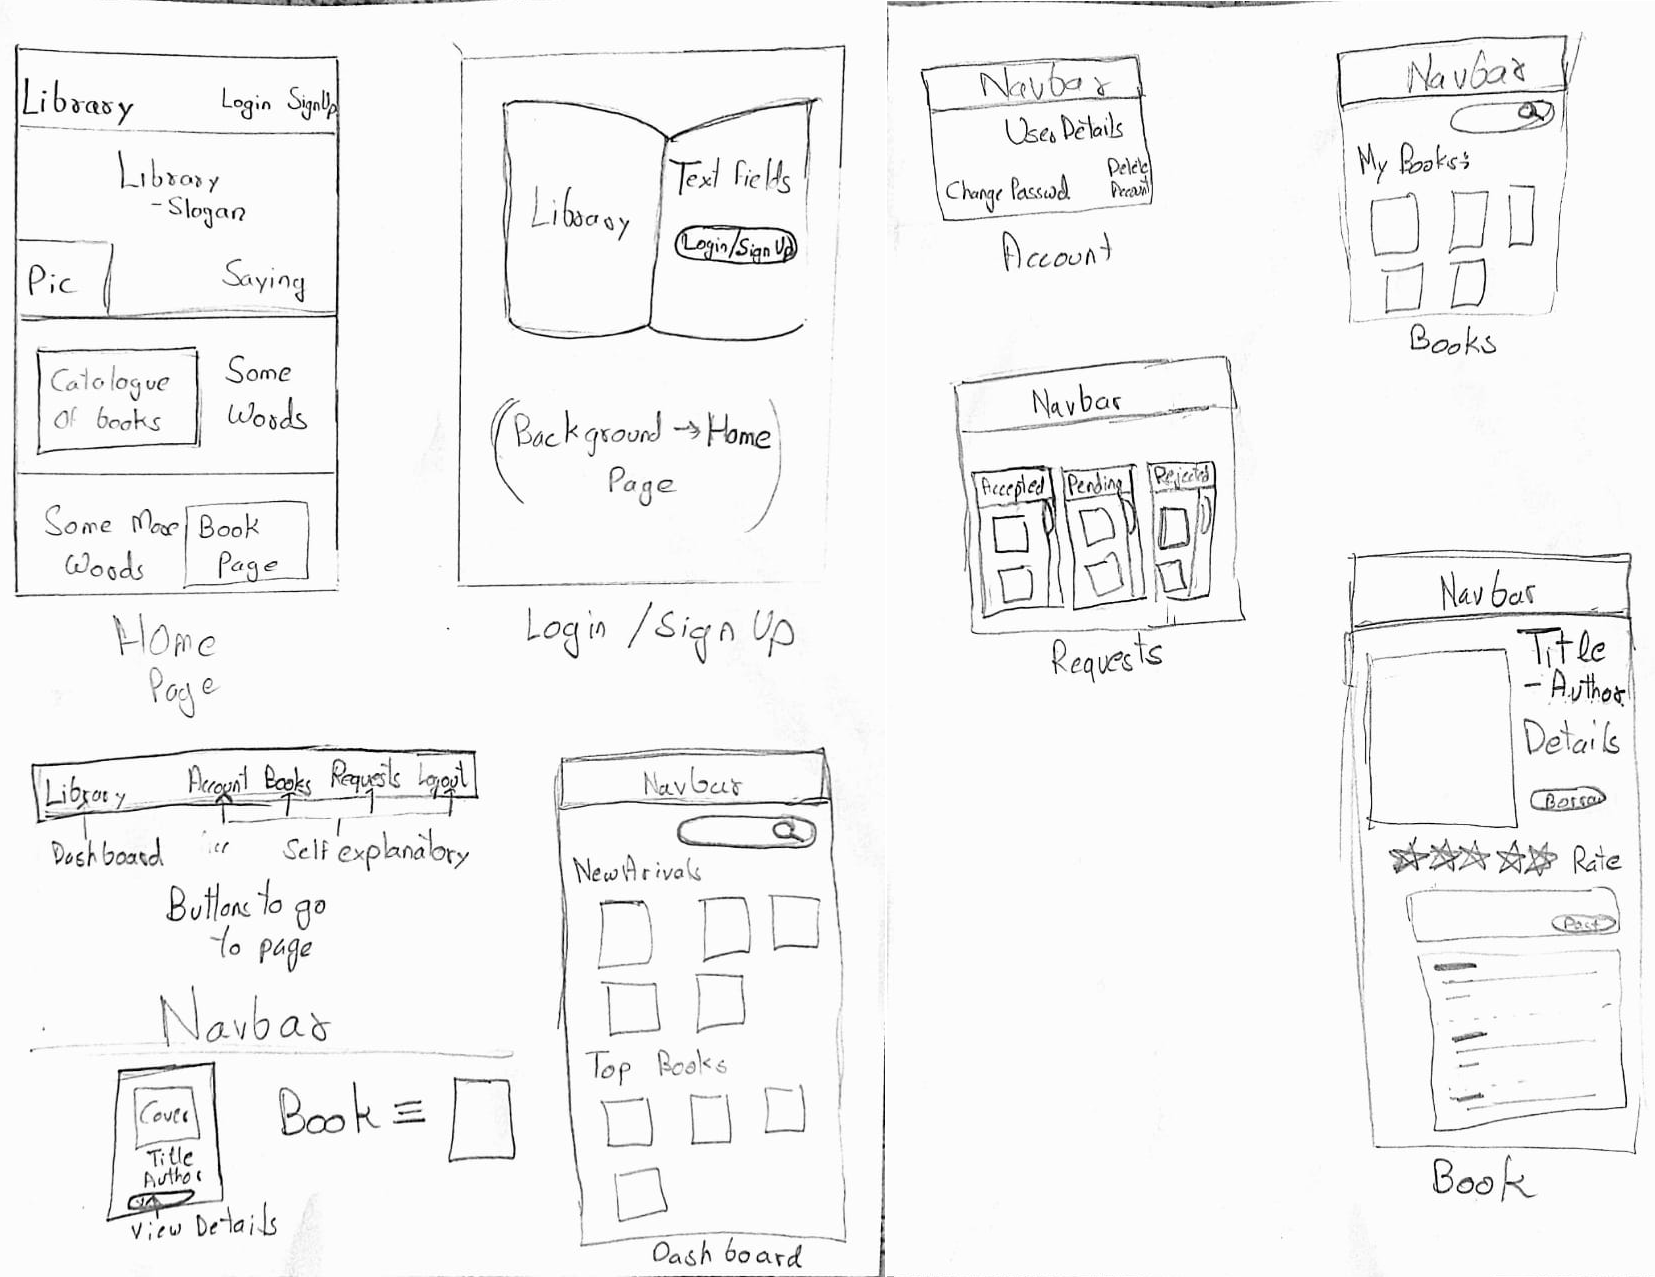 Library Login SignUp
Library
-Slogan
Pic
Saying
Catalogue
Of books
Some
Words
Some More
Words
Book
Page
Home
Page
Library
Text Fields
Login/Sign Up
(Background → Home
Page)
Login / Sign Up
Library Account Books Requests Logout
Dashboard
Self explanatory
Buttons to go
to page
Navbar
Cover
Title
Author
View Details
Book ≡
Navbar
New Arrivals
Top Books
Dashboard
Navbar
User Details
Change Passwod
Delete
Account
Account
Navbar
My Books:
Books
Navbar
Accepted Pending Rejected
Requests
Navbar
Title
- Author
Details
Rate
Post
Book